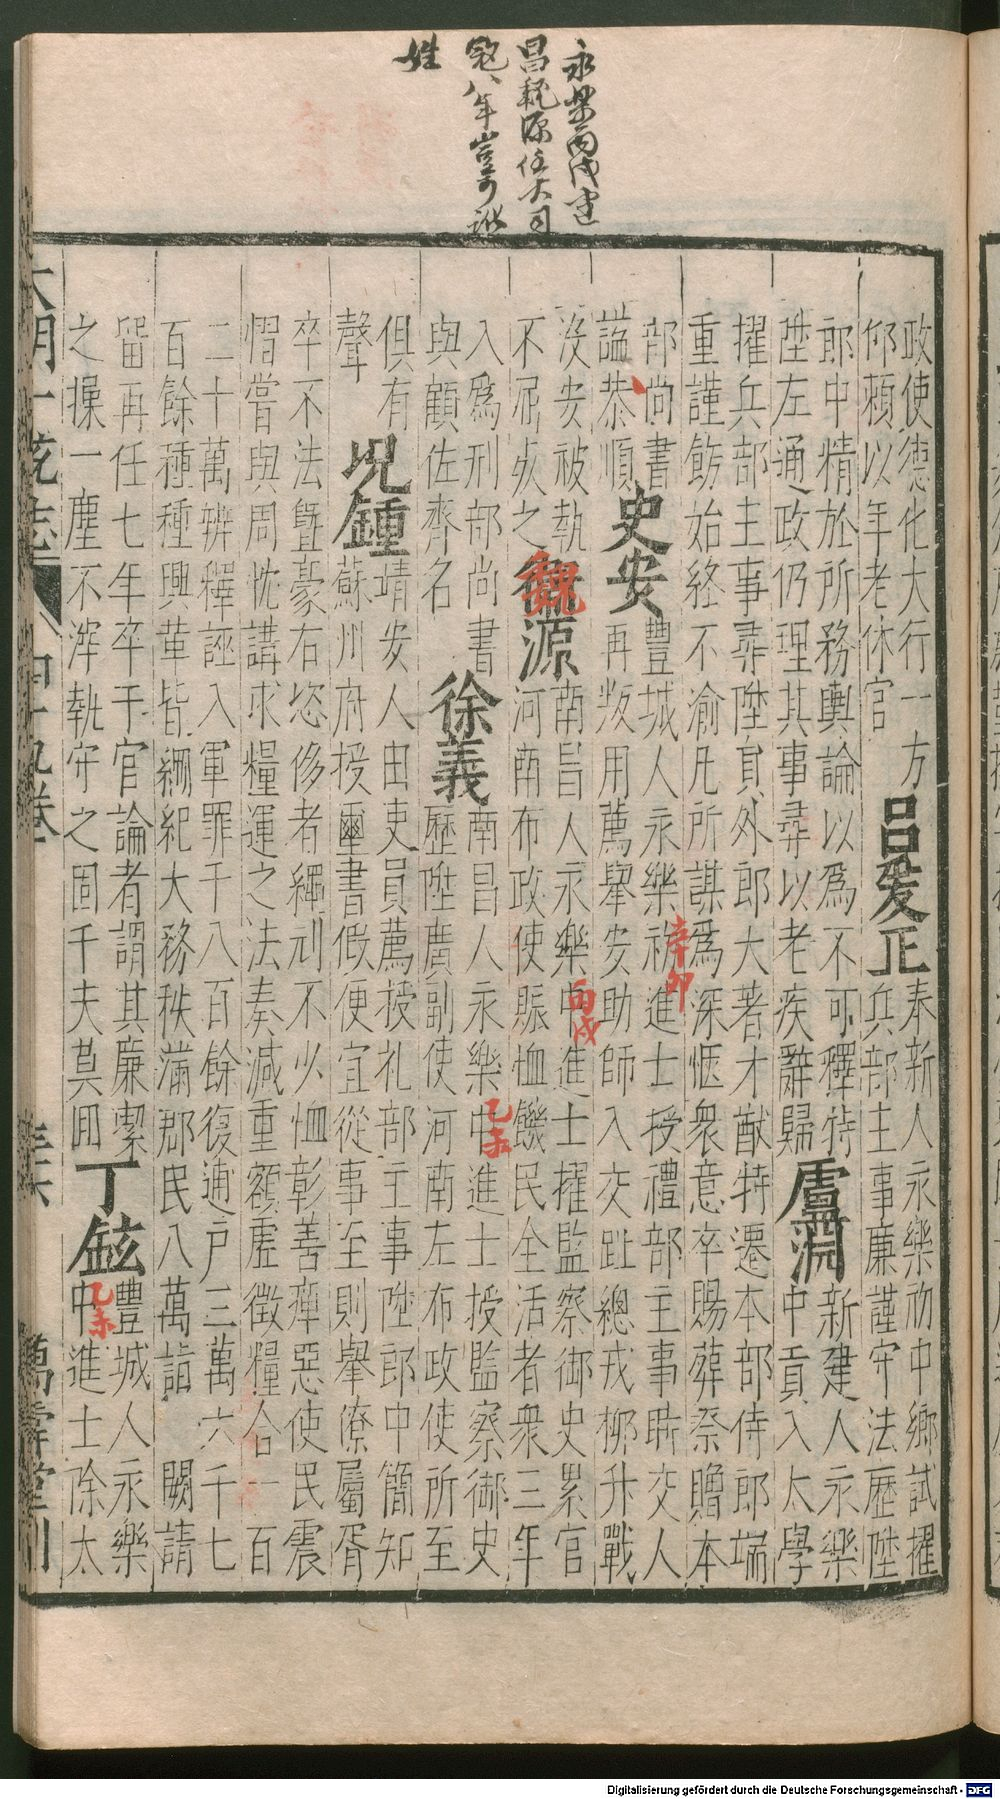 永樂丙戌建
昌魏源任大司
寇八年豈可訛
姓
政使德化大行一方呂爰正奉新人永樂初中鄉試擢
仰賴以年老休官兵部主事廉謹守法歷陞
郎中精於所務輿論以為不可釋特新建人永樂
陞左通政仍理其事尋以老疾辭歸盧淵中貢入太學
擢兵部主事尋陞員外郎大著才猷特遷本部侍郎端
重謹飭始終不渝凡所謀為深愜衆意卒賜葬祭贈本
部尚書史安豐城人永樂辛卯進士授禮部主事時交人
諡恭順再叛用薦舉安助師入交趾總戎柳升戰
沒安被執魏源南昌人永樂丙戌中進士擢監察御史累官
不屈死之河南布政使賑恤饑民全活者衆三年
入為刑部尚書徐義南昌人永樂乙未中進士授監察御史
與顧佐齊名歷陞廣副使河南左布政使所至
俱有況鍾靖安人由吏員薦授礼部主事陞郎中簡知
聲蘇州府授璽書假便宜從事至則舉僚屬胥
卒不法暨豪右恣侈者繩刓不少恤彰善癉惡使民震
慴嘗與周忱講求糧運之法奏減重額虛徵糧合一百
二十萬辨釋誣入軍罪千八百餘復逋戶三萬六千七
百餘種種興革皆綱紀大務秩滿郡民八萬詣闕請
留再任七年卒于官論者謂其廉潔丁鉉豐城人永樂
之操一塵不滓執守之固千夫莫囘乙未中進士除太
大明一統志 四十九卷 三六 萬壽堂刊
Digitalisierung gefördert durch die Deutsche Forschungsgemeinschaft - DFG